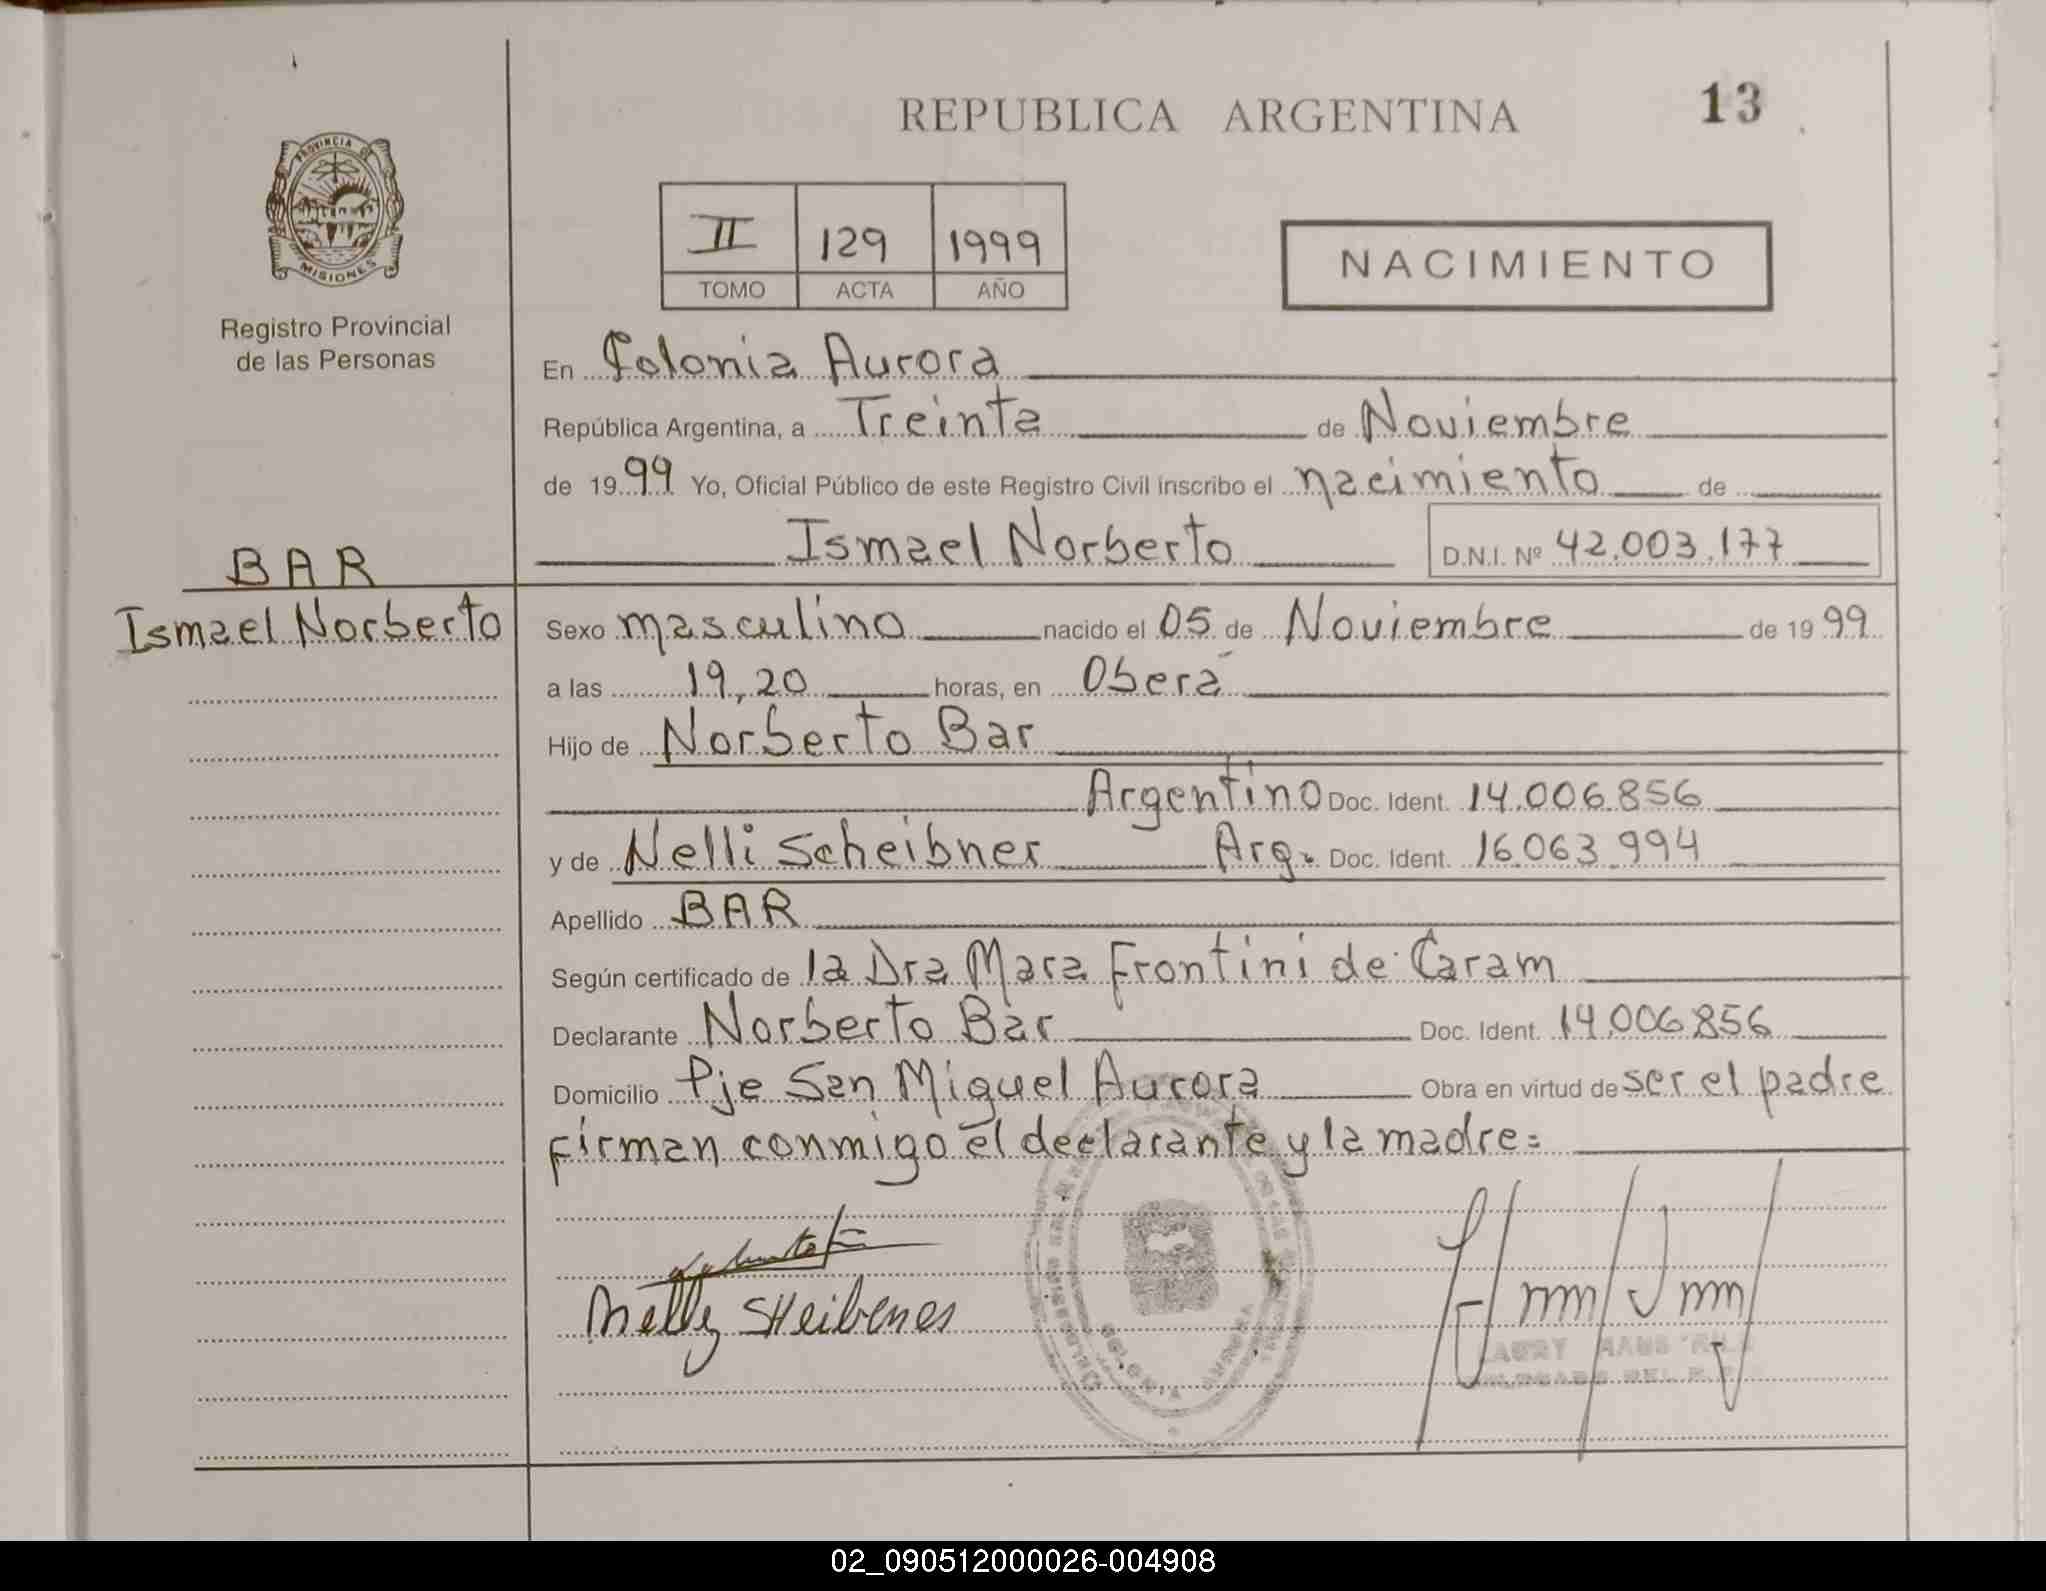 REPUBLICA ARGENTINA
13
PROVINCIA DE
MISIONES
Registro Provincial
de las Personas
II 129 1999
TOMO ACTA AÑO
NACIMIENTO
En Colonia Aurora
República Argentina, a Treinta de Noviembre
de 1999 Yo, Oficial Público de este Registro Civil inscribo el nacimiento de
Ismael Norberto D.N.I. Nº 42.003.177
BAR
Ismael Norberto
Sexo masculino nacido el 05 de Noviembre de 1999
a las 19,20 horas, en Oberá
Hijo de Norberto Bar
Argentino Doc. Ident. 14.006.856
y de Nelli Scheibner Arg. Doc. Ident. 16.063.994
Apellido BAR
Según certificado de la Dra Mara Frontini de Caram
Declarante Norberto Bar Doc. Ident. 14.006.856
Domicilio Pje San Miguel Aurora Obra en virtud de ser el padre
firman conmigo el declarante y la madre=
Nelly SHeibenes
COLONIA AURORA
02_090512000026-004908